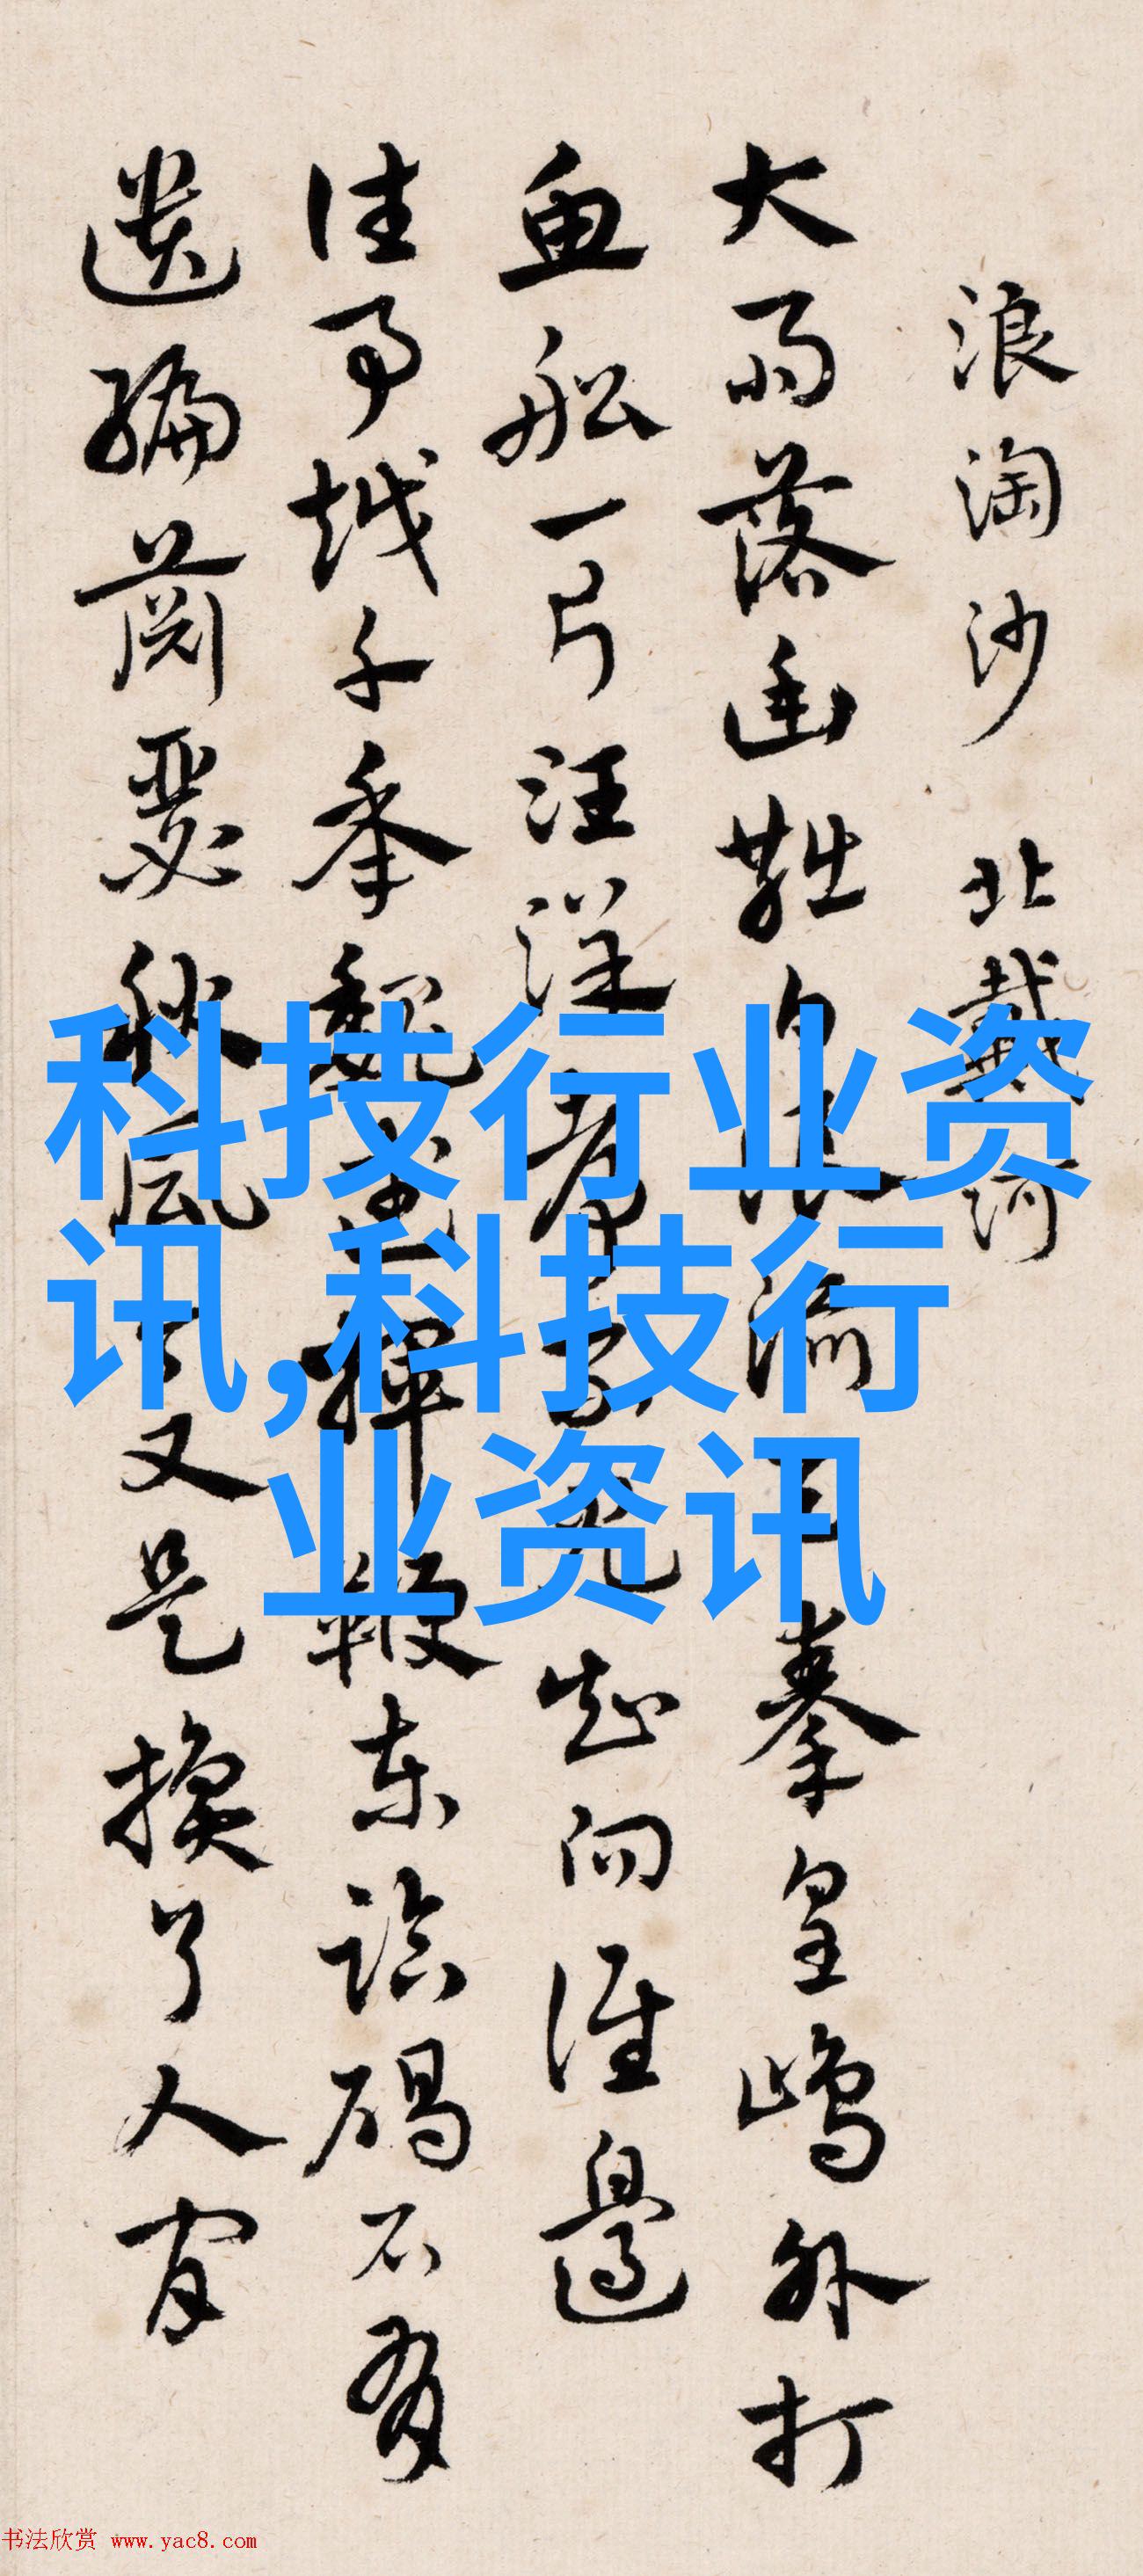 浪淘沙 北戴河
大雨落幽燕白浪滔天秦皇嶋外打
魚船一片汪洋都不見知向誰邊
往事越千年魏武揮鞭東臨碣石有
遺編蕭瑟秋風今又是換了人间
科技行业资
讯,科技行
业资讯
书法欣赏 www.yac8.com